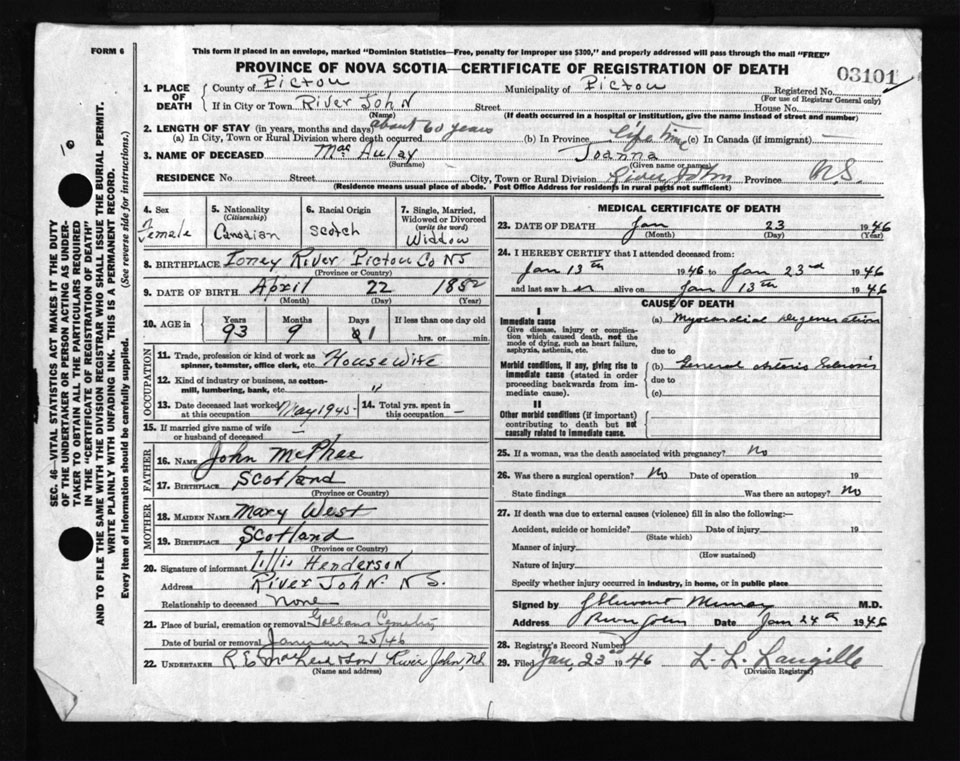 FORM 6
This form if placed in an envelope, marked "Dominion Statistics—Free, penalty for improper use $300," and properly addressed will pass through the mail "FREE"
PROVINCE OF NOVA SCOTIA—CERTIFICATE OF REGISTRATION OF DEATH
03101
1. PLACE OF DEATH
County of Pictou Municipality of Pictou Registered No.
(For use of Registrar General only)
If in City or Town River John Street House No.
(Name) (If death occurred in a hospital or institution, give the name instead of street and number)
2. LENGTH OF STAY (in years, months and days)
(a) In City, Town or Rural Division where death occurred about 60 years (b) In Province life time (c) In Canada (if immigrant)
3. NAME OF DECEASED MacAulay Joanna
(Surname) (Given name or names)
RESIDENCE No. Street City, Town or Rural Division River John Province N.S.
(Residence means usual place of abode. Post Office Address for residents in rural parts not sufficient)
4. Sex Female
5. Nationality (Citizenship) Canadian
6. Racial Origin Scotch
7. Single, Married, Widowed or Divorced (write the word) Widdow
8. BIRTHPLACE Toney River Pictou Co NS
(Province or Country)
9. DATE OF BIRTH April 22 1852
(Month) (Day) (Year)
10. AGE in Years Months Days If less than one day old
93 9 1 hrs. or min.
OCCUPATION
11. Trade, profession or kind of work as spinner, teamster, office clerk, etc. House Wife
12. Kind of industry or business, as cotton-mill, lumbering, bank, etc. "
13. Date deceased last worked at this occupation May 1945 14. Total yrs. spent in this occupation —
15. If married give name of wife or husband of deceased —
FATHER
16. NAME John McPhae
17. BIRTHPLACE Scotland
(Province or Country)
MOTHER
18. MAIDEN NAME Mary West
19. BIRTHPLACE Scotland
(Province or Country)
20. Signature of informant Henderson
Address River John N.S.
Relationship to deceased None
21. Place of burial, cremation or removal Cemetery
Date of burial or removal January 25/46
22. UNDERTAKER R.E. & Son River John, N.S.
(Name and address)
MEDICAL CERTIFICATE OF DEATH
23. DATE OF DEATH Jan 23 1946
(Month) (Day) (Year)
24. I HEREBY CERTIFY that I attended deceased from:
Jan 13th 1946 to Jan 23rd 1946
and last saw her alive on Jan 13th 1946
CAUSE OF DEATH
I
Immediate cause
Give disease, injury or complication which caused death, not the mode of dying, such as heart failure, asphyxia, asthenia, etc.
(a) Myocardial degeneration
due to
Morbid conditions, if any, giving rise to immediate cause (stated in order proceeding backwards from immediate cause).
(b) General
due to
(c)
II
Other morbid conditions (if important) contributing to death but not causally related to immediate cause.
25. If a woman, was the death associated with pregnancy? No
26. Was there a surgical operation? No Date of operation 19
State findings Was there an autopsy? No
27. If death was due to external causes (violence) fill in also the following:—
Accident, suicide or homicide? Date of injury 19
(State which)
Manner of injury
(How sustained)
Nature of injury
Specify whether injury occurred in industry, in home, or in public place
Signed by J Stewart Murray M.D.
Address River John Date Jan 24th 1946
28. Registrar's Record Number
29. Filed Jan, 23rd 1946 L. L. Langille
(Division Registrar)
SEC. 46—VITAL STATISTICS ACT MAKES IT THE DUTY
OF THE UNDERTAKER OR PERSON ACTING AS UNDER-
TAKER TO OBTAIN ALL THE PARTICULARS REQUIRED
IN THE "CERTIFICATE OF REGISTRATION OF DEATH"
AND TO FILE THE SAME WITH THE DIVISION REGISTRAR WHO SHALL ISSUE THE BURIAL PERMIT.
WRITE PLAINLY WITH UNFADING INK. THIS IS A PERMANENT RECORD.
Every item of information should be carefully supplied. (See reverse side for instructions.)